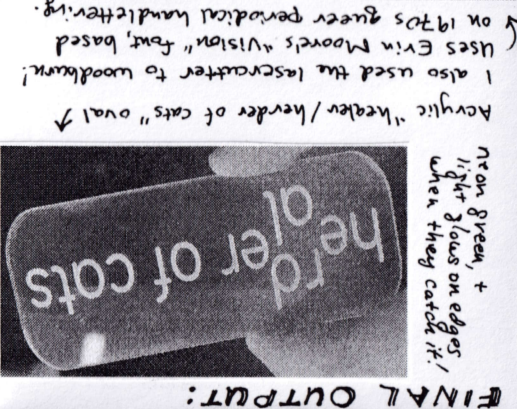 FINAL OUTPUT:
neon green, +
light glows on edges
when they catch it!
rd
he er of cats
al
Acrylic "healer/herder of cats" oval ↑
I also used the lasercutter to woodburn!
Uses Erin Moore's "Vision" font, based
on 1970s queer periodical handlettering.